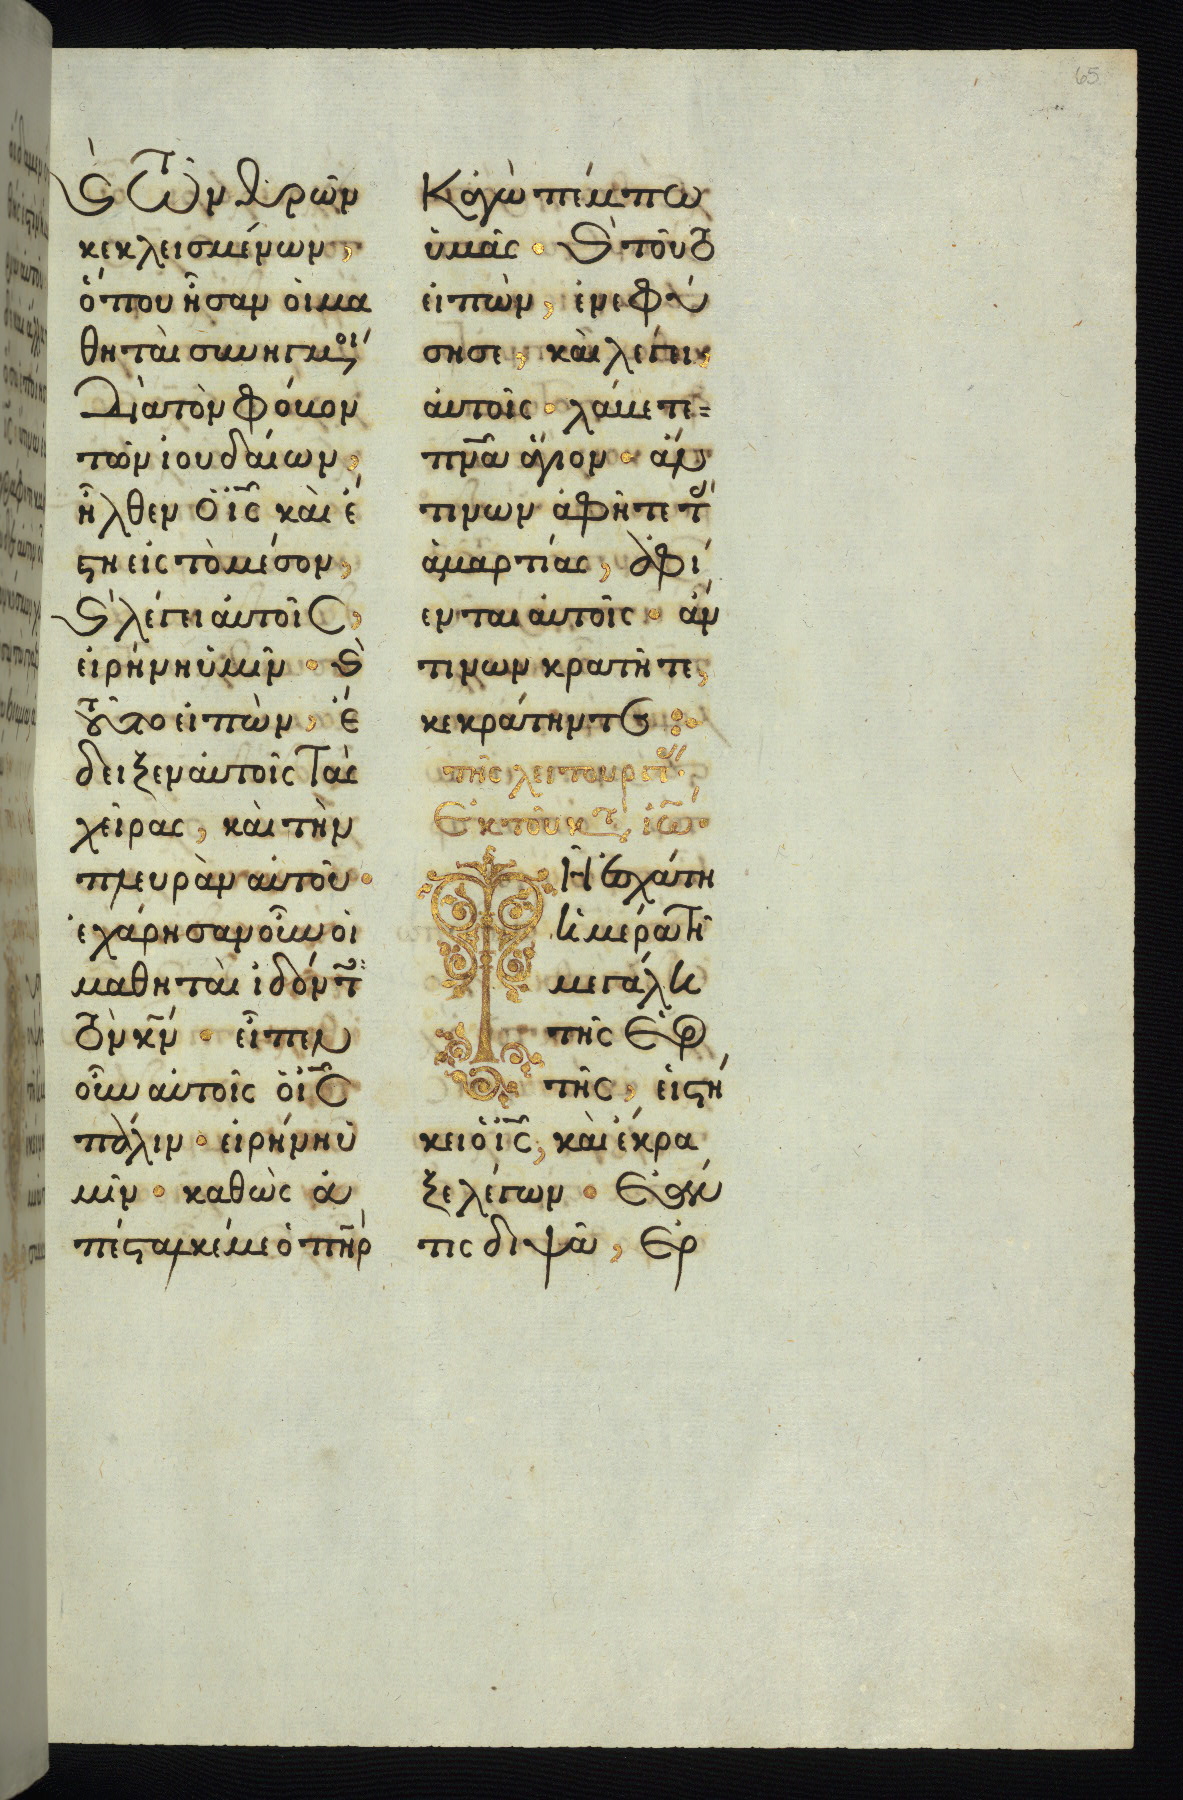 65
καὶ τῶν θυρῶν
κεκλεισμένων,
ὅπου ἦσαν οἱ μα
θηταὶ συνηγμένοι
διὰ τὸν φόβον
τῶν ἰουδαίων,
ἦλθεν ὁ ις καὶ ἔ
στη εἰς τὸ μέσον,
καὶ λέγει αὐτοῖς,
εἰρήνη ὑμῖν · καὶ
τοῦτο εἰπὼν, ἔ
δειξεν αὐτοῖς τὰς
χεῖρας, καὶ τὴν
πλευρὰν αὐτοῦ ·
ἐχάρησαν οὖν οἱ
μαθηταὶ ἰδόντες
τὸν κν · εἶπεν
οὖν αὐτοῖς ὁ ις
πάλιν · εἰρήνη ὑ
μῖν · καθὼς ἀ
πέσταλκέ με ὁ πηρ
κἀγὼ πέμπω
ὑμᾶς · καὶ τοῦτο
εἰπὼν, ἐνεφύ
σησε, καὶ λέγει
αὐτοῖς · λάβετε
πνα ἅγιον · ἄν
τινων ἀφῆτε τὰς
ἁμαρτίας, ἀφί
ενται αὐτοῖς · ἄν
τινων κρατῆτε,
κεκράτηνται
τῆς λειτουργίας
Ἐκ τοῦ κατὰ ἰω
Τῆ ἐσχάτη
ἡμέρα τῆ
μεγάλη
τῆς ἑορ
τῆς, εἱστή
κει ὁ ις, καὶ ἔκρα
ξε λέγων · ἐάν
τις διψᾶ, ἐρ